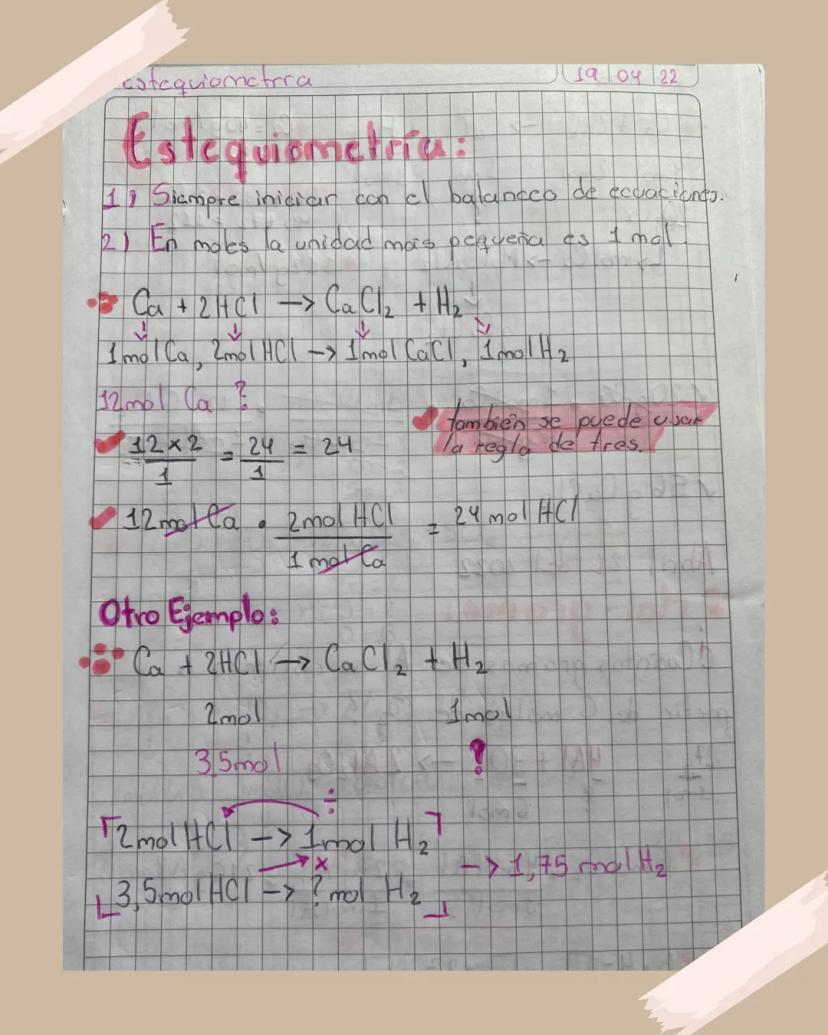 estequiometrra
19 04 22
Estequiometría:
1) Siempre iniciar con el balanceo de ecuaciones.
2) En moles la unidad más pequeña es 1 mol
Ca + 2HCl → CaCl₂ + H₂
1molCa, 2molHCl → 1molCaCl, 1molH₂
12mol Ca ?
12 x 2 / 1 = 24 / 1 = 24
también se puede usar
la regla de tres.
12molCa • 2mol HCl / 1molCa = 24molHCl
Otro Ejemplo:
Ca + 2HCl → CaCl₂ + H₂
2mol 1mol
3,5mol ?
÷
2molHCl → 1mol H₂
x
→ 1,75 mol H₂
3,5molHCl → ?mol H₂